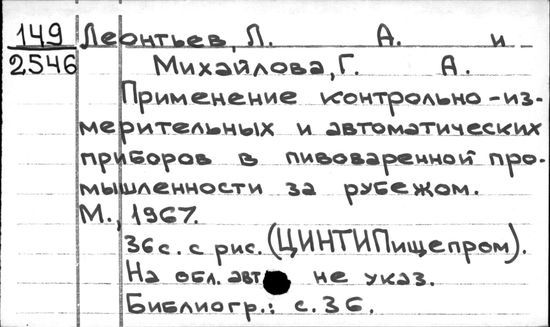 149
2546
Леонтьев, Л. А. и
Михайлова, Г. А.
Применение контрольно-из-
мерительных и автоматических
приборов в пивоваренной про-
мышленности за рубежом.
М., 1967.
36 с. с рис. (ЦИНТИПищепром).
На обл. авт. не указ.
Библиогр.: с. 36.